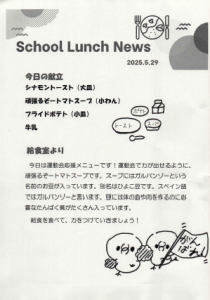 School Lunch News
2025.5.29
今日の献立
シナモントースト（大皿）
頑張るぞートマトスープ（小わん）
フライドポテト（小皿）
牛乳
ポテト
スープ
トースト
給食室より
今日は運動会応援メニューです！運動会で力が出せるように、
頑張るぞートマトスープです。スープにはガルバンゾーという
名前のお豆が入っています。別名はひよこ豆です。スペイン語
ではガルバンゾーと言います。豆には体の血や肉を作るのに必
要なたんぱく質がたくさん入っています。
給食を食べて、力をつけていきましょう！
がんばるぞー